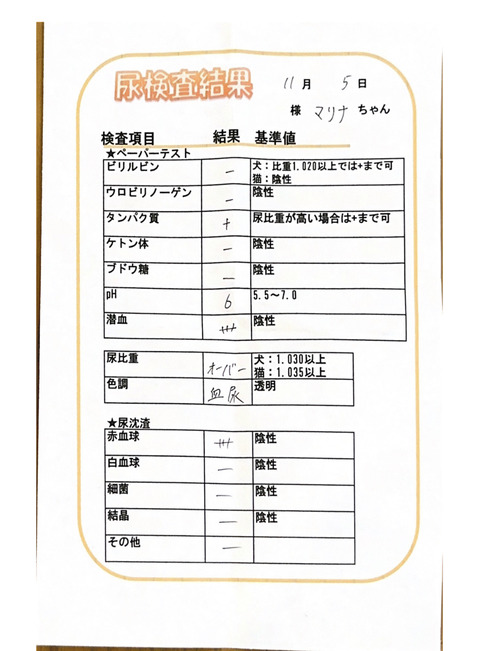 尿検査結果
11月 5日
様 マリナ ちゃん
検査項目 結果 基準値
★ペーパーテスト
ビリルビン － 犬：比重1.020以上では+まで可
猫：陰性
ウロビリノーゲン － 陰性
タンパク質 + 尿比重が高い場合は+まで可
ケトン体 － 陰性
ブドウ糖 － 陰性
pH 6 5.5～7.0
潜血 +++ 陰性
尿比重 オーバー 犬：1.030以上
猫：1.035以上
色調 血尿 透明
★尿沈渣
赤血球 +++ 陰性
白血球 － 陰性
細菌 － 陰性
結晶 － 陰性
その他 －